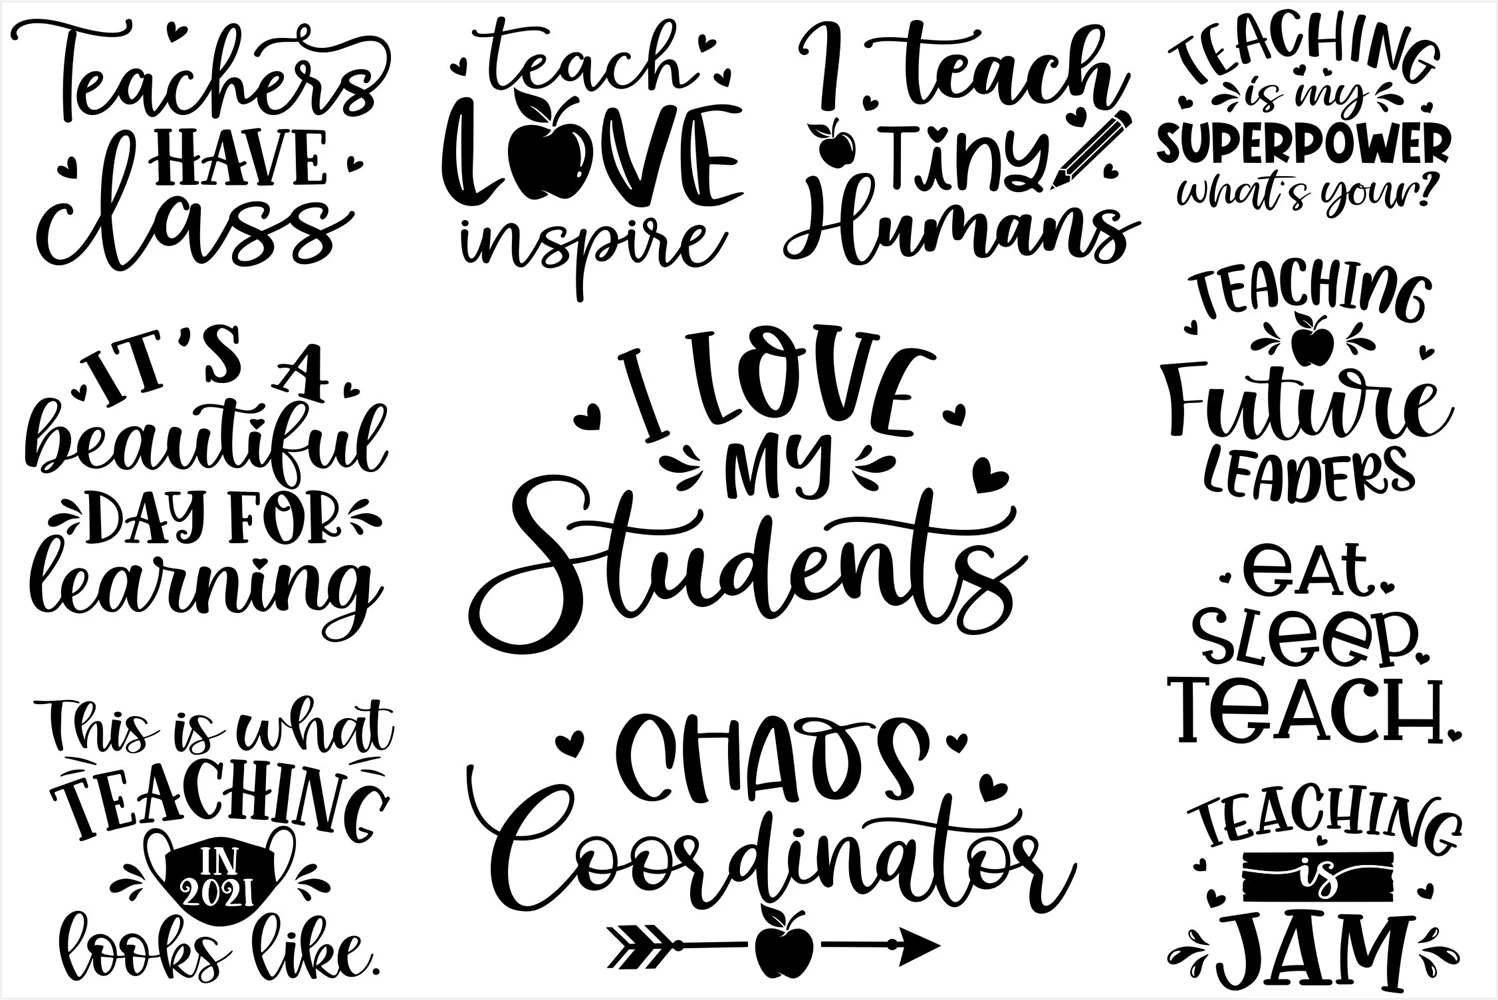 Teachers
HAVE
class
teach
LOVE
inspire
I teach
Tiny
Humans
TEACHING
is my
SUPERPOWER
what's your?
IT'S A
beautiful
DAY FOR
learning
I LOVE
MY
Students
TEACHING
Future
LEADERS
eAt.
SLeep.
TeACH.
This is what
TEACHING
IN
2021
looks like.
CHAOS
Coordinator
TEACHING
is
JAM